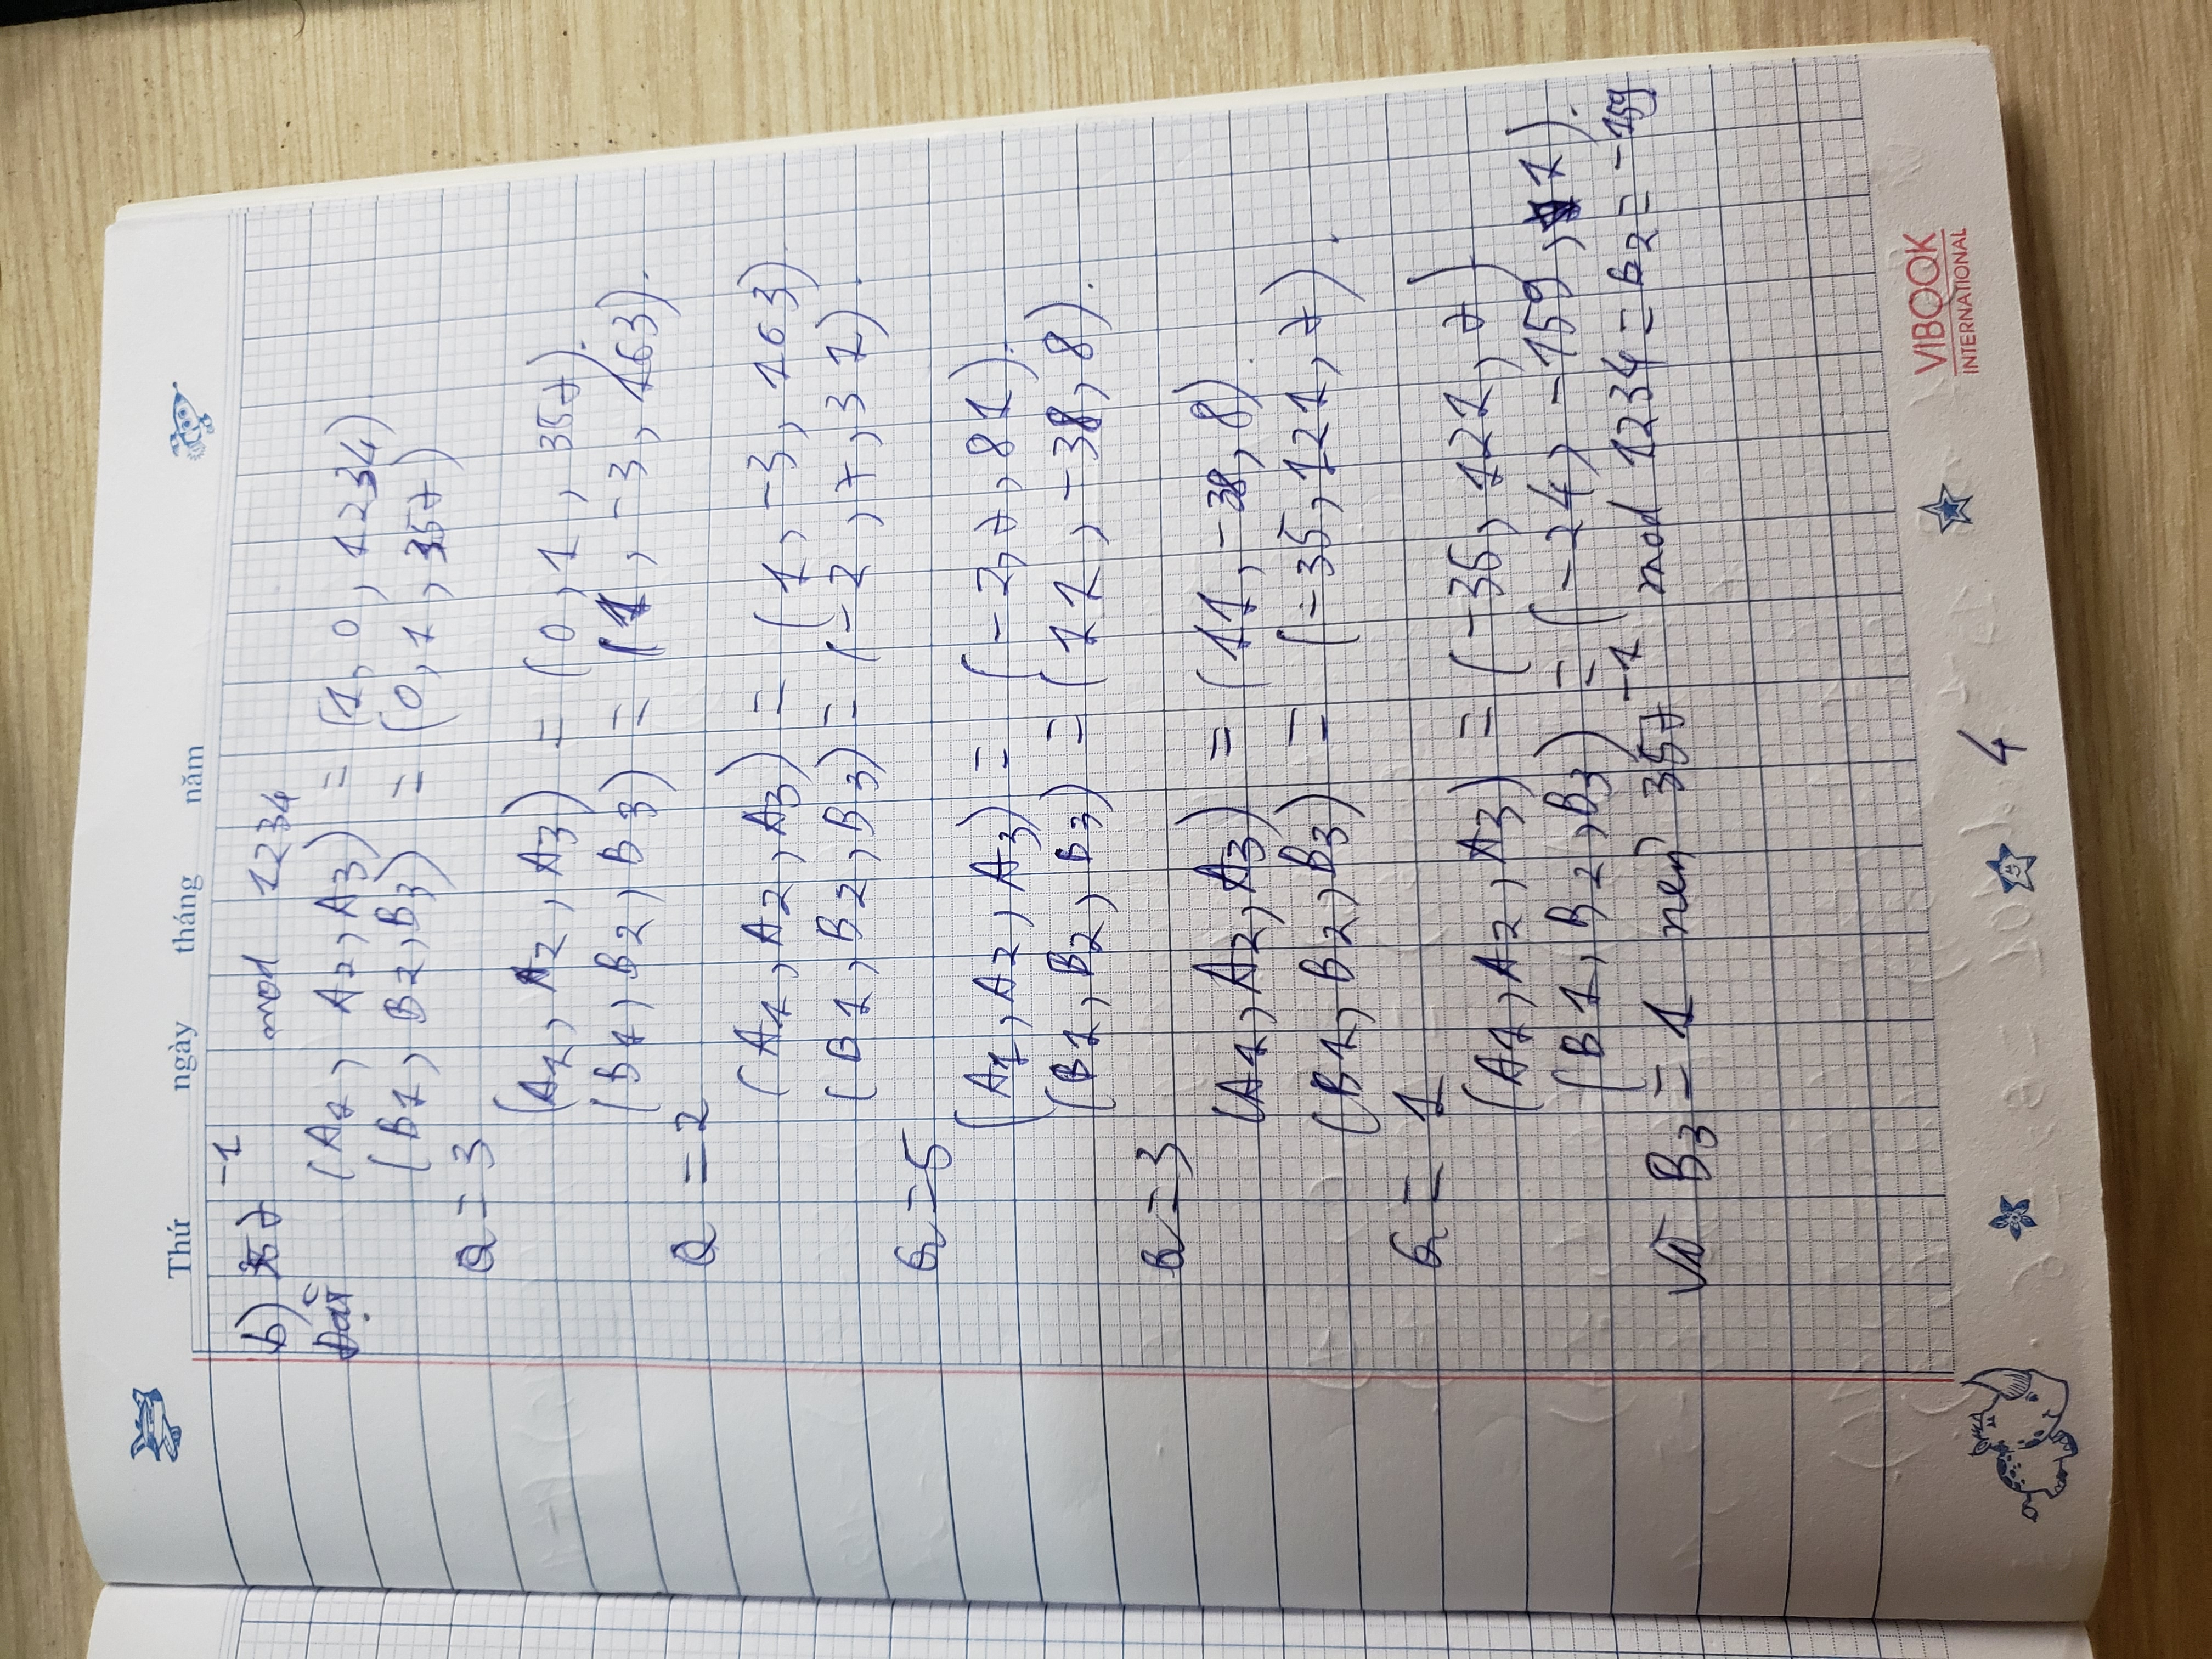 Thứ ngày tháng năm
b) 357^-1 mod 1234
Đặt (A1, A2, A3) = (1, 0, 1234)
(B1, B2, B3) = (0, 1, 357)
Q = 3
(A1, A2, A3) = (0, 1, 357).
(B1, B2, B3) = (1, -3, 163).
Q = 2
(A1, A2, A3) = (1, -3, 163).
(B1, B2, B3) = (-2, 7, 31).
Q = 5
(A1, A2, A3) = (-2, 7, 81).
(B1, B2, B3) = (11, -38, 8).
Q = 3
(A1, A2, A3) = (11, -38, 8).
(B1, B2, B3) = (-35, 121, 7).
Q = 1
(A1, A2, A3) = (-35, 121, 7)
(B1, B2, B3) = (-24, -159, 1).
Vì B3 = 1 nên 357^-1 mod 1234 = B2 = -159
VIBOOK
INTERNATIONAL
4